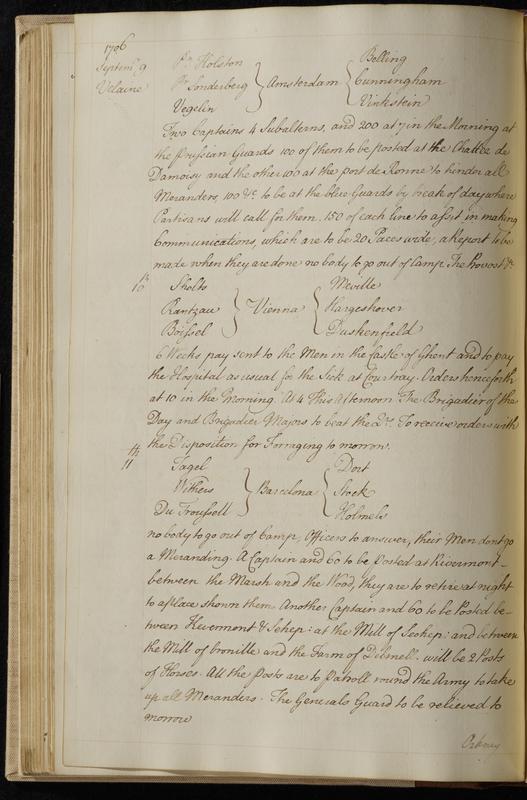 1706
Septemr. 9
Velaine
Pr. Holston
Pr. Sonderberg
Vegelin
Amsterdam
Belling
Cunningham
Vinkstein
Two Captains 4 Subalterns, and 200 at 7 in the Morning at
the Prussian Guards 100 of them to be posted at the Chattee de
Damoisy and the other 100 at the post de Ronne to hinder all
Meranders, 100 &c. to be at the blue Guards by break of day where
Partisans will call for them. 150 of each line to assist in making
Communications, which are to be 20 Paces wide, a Report to be
made when they are done no body to go out of Camp. The Provost &c.
10th
Sholto
Rantzau
Boissel
Vienna
Meville
Hargeshover
Duskenfield
6 Weeks pay sent to the Men in the Castle of Ghent and to pay
the Hospital as usual for the Sick at Courtray. Orders henceforth
at 10 in the Morning. At 4 This Afternoon The Brigadier of the
Day and Brigadier Majors to beat the Qrs. To receive orders with
the Disposition for Foraging to morrow.
11th
Fagel
Withers
Du Troussell
Barcelona
Dort
Stock
Holmels
no body to go out of Camp, Officers to answer, their Men dont go
a Meranding. A Captain and 60 to be Posted at Rivermont
between the Marsh and the Wood, they are to retire at night
to a place shown them Another Captain and 60 to be Posted be-
tween Kevermont & Schep: at the Mill of Seohep: and between
the Mill of Cronville and the Farm of Dibmell. will be 2 Posts
of Horses. All the Posts are to Patroll round the Army to take
up all Meranders. The Generals Guard to be relieved to
morrow
Orkney